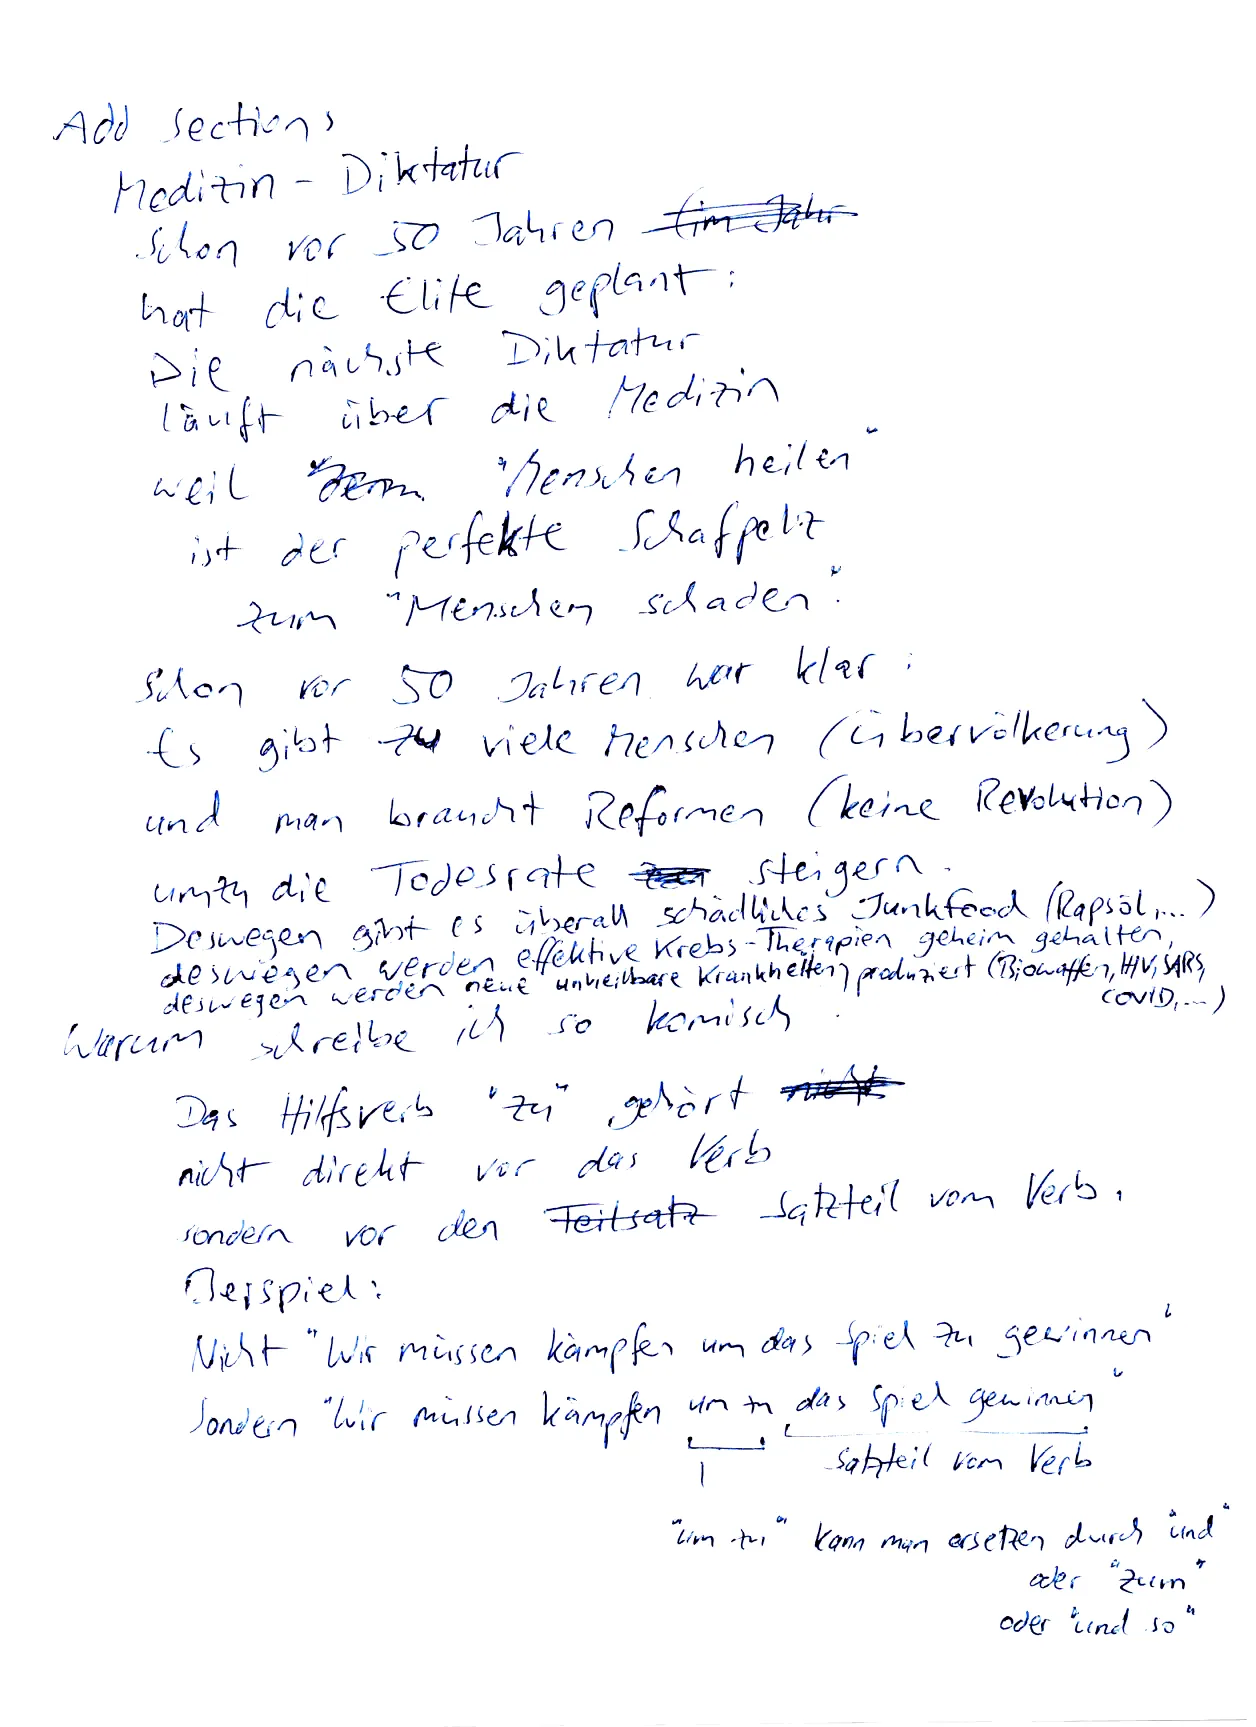 Add sections
Medizin - Diktatur
Schon vor 50 Jahren (im Jahr
hat die Elite geplant:
Die nächste Diktatur
läuft über die Medizin
weil denn "Menschen heilen"
ist der perfekte Schafpelz
zum "Menschen schaden".
Schon vor 50 Jahren war klar:
Es gibt zu viele Menschen (Übervölkerung)
und man braucht Reformen (keine Revolution)
um zu die Todesrate zu steigern.
Deswegen gibt es überall schädliches Junkfood (Rapsöl,...)
deswegen werden effektive Krebs-Therapien geheim gehalten,
deswegen werden neue unheilbare Krankheiten produziert (Biowaffen, HIV, SARS,
COVID,...)
Warum schreibe ich so komisch.
Das Hilfsverb "zu" gehört nicht
nicht direkt vor das Verb
sondern vor den Teilsatz Satzteil vom Verb.
Beispiel:
Nicht "Wir müssen kämpfen um das Spiel zu gewinnen"
Sondern "Wir müssen kämpfen um zu das Spiel gewinnen"
Satzteil vom Verb
"um zu" kann man ersetzen durch "und"
oder "zum"
oder "und so"